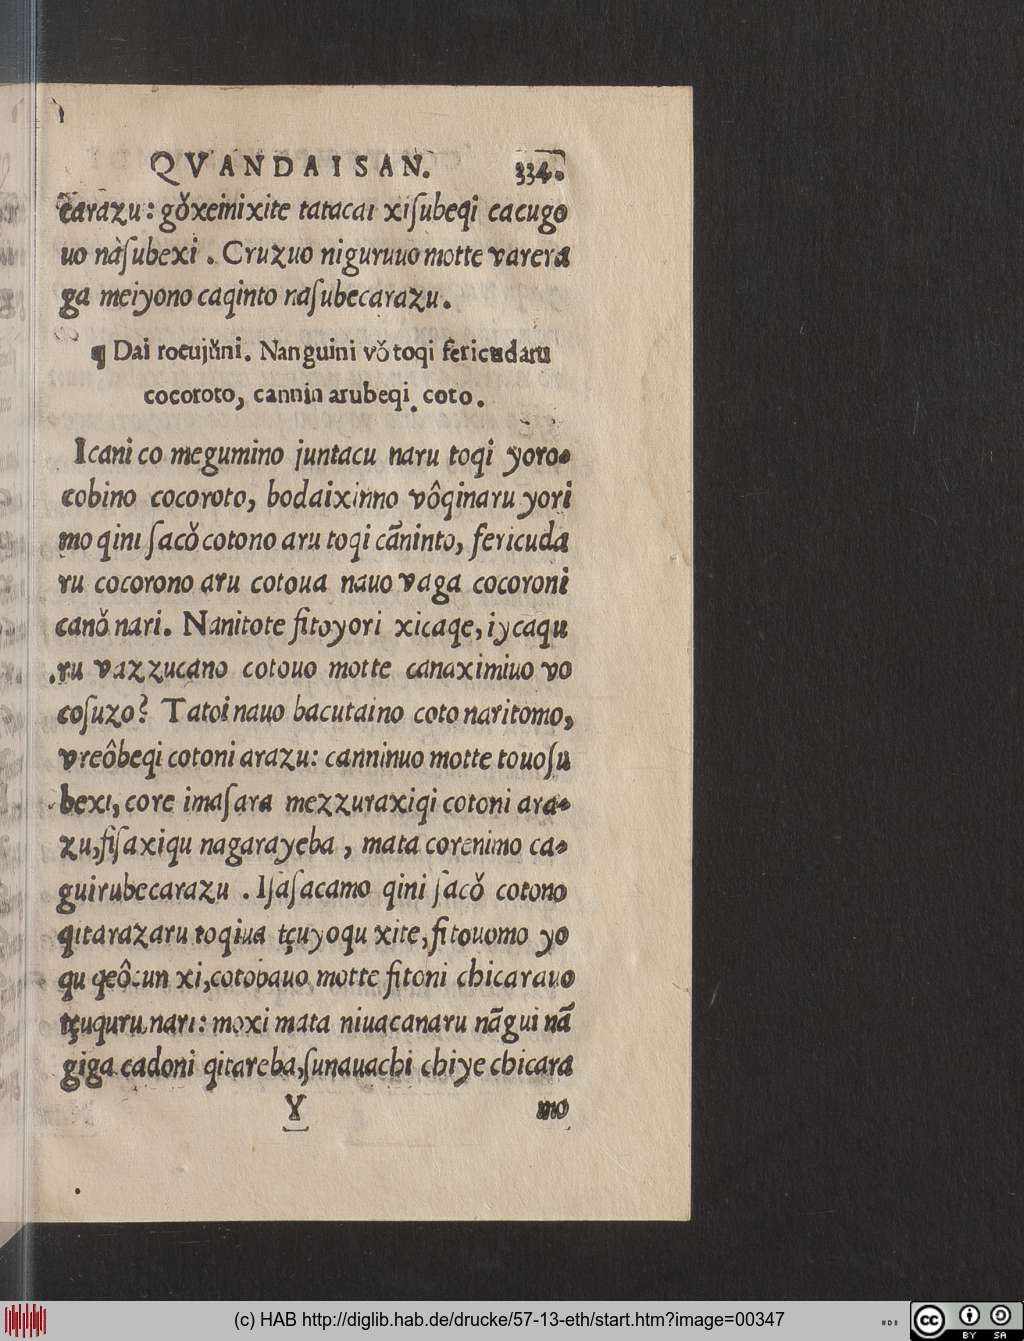 QVANDAISAN. 334.
carazu: gǒxeinixite tatacai xiſubeqi cacugo
uo nàſubexi. Cruzuo niguruuo motte varera
ga meiyono caqinto naſubecarazu.
¶ Dai rocujǔni. Nanguini vǒ toqi fericudaru
cocoroto, cannin arubeqi coto.
Icani co megumino juntacu naru toqi yoro-
cobino cocoroto, bodaixinno vôqinaru yori
mo qini ſacǒ cotono aru toqi cãninto, fericuda
ru cocorono aru cotoua nauo vaga cocoroni
canǒ nari. Nanitote fitoyori xicaqe, iycaqu
ru vazzucano cotouo motte canaximiuo vo
coſuzo? Tatoi nauo bacutaino coto naritomo,
vreôbeqi cotoni arazu: canninuo motte touoſu
bexi, core imaſara mezzuraxiqi cotoni ara-
zu, fiſaxiqu nagarayeba, mata corenimo ca-
guirubecarazu. Iſaſacamo qini ſacǒ cotono
qitarazaru toqiua tçuyoqu xite, fitouomo yo
qu qeôcun xi, cotobauo motte fitoni chicarauo
tçuquru nari: moxi mata niuacanaru nãgui nã
giga cadoni qitareba, ſunauachi chiye chicara
Y mo
(c) HAB http://diglib.hab.de/drucke/57-13-eth/start.htm?image=00347
cc BY SA